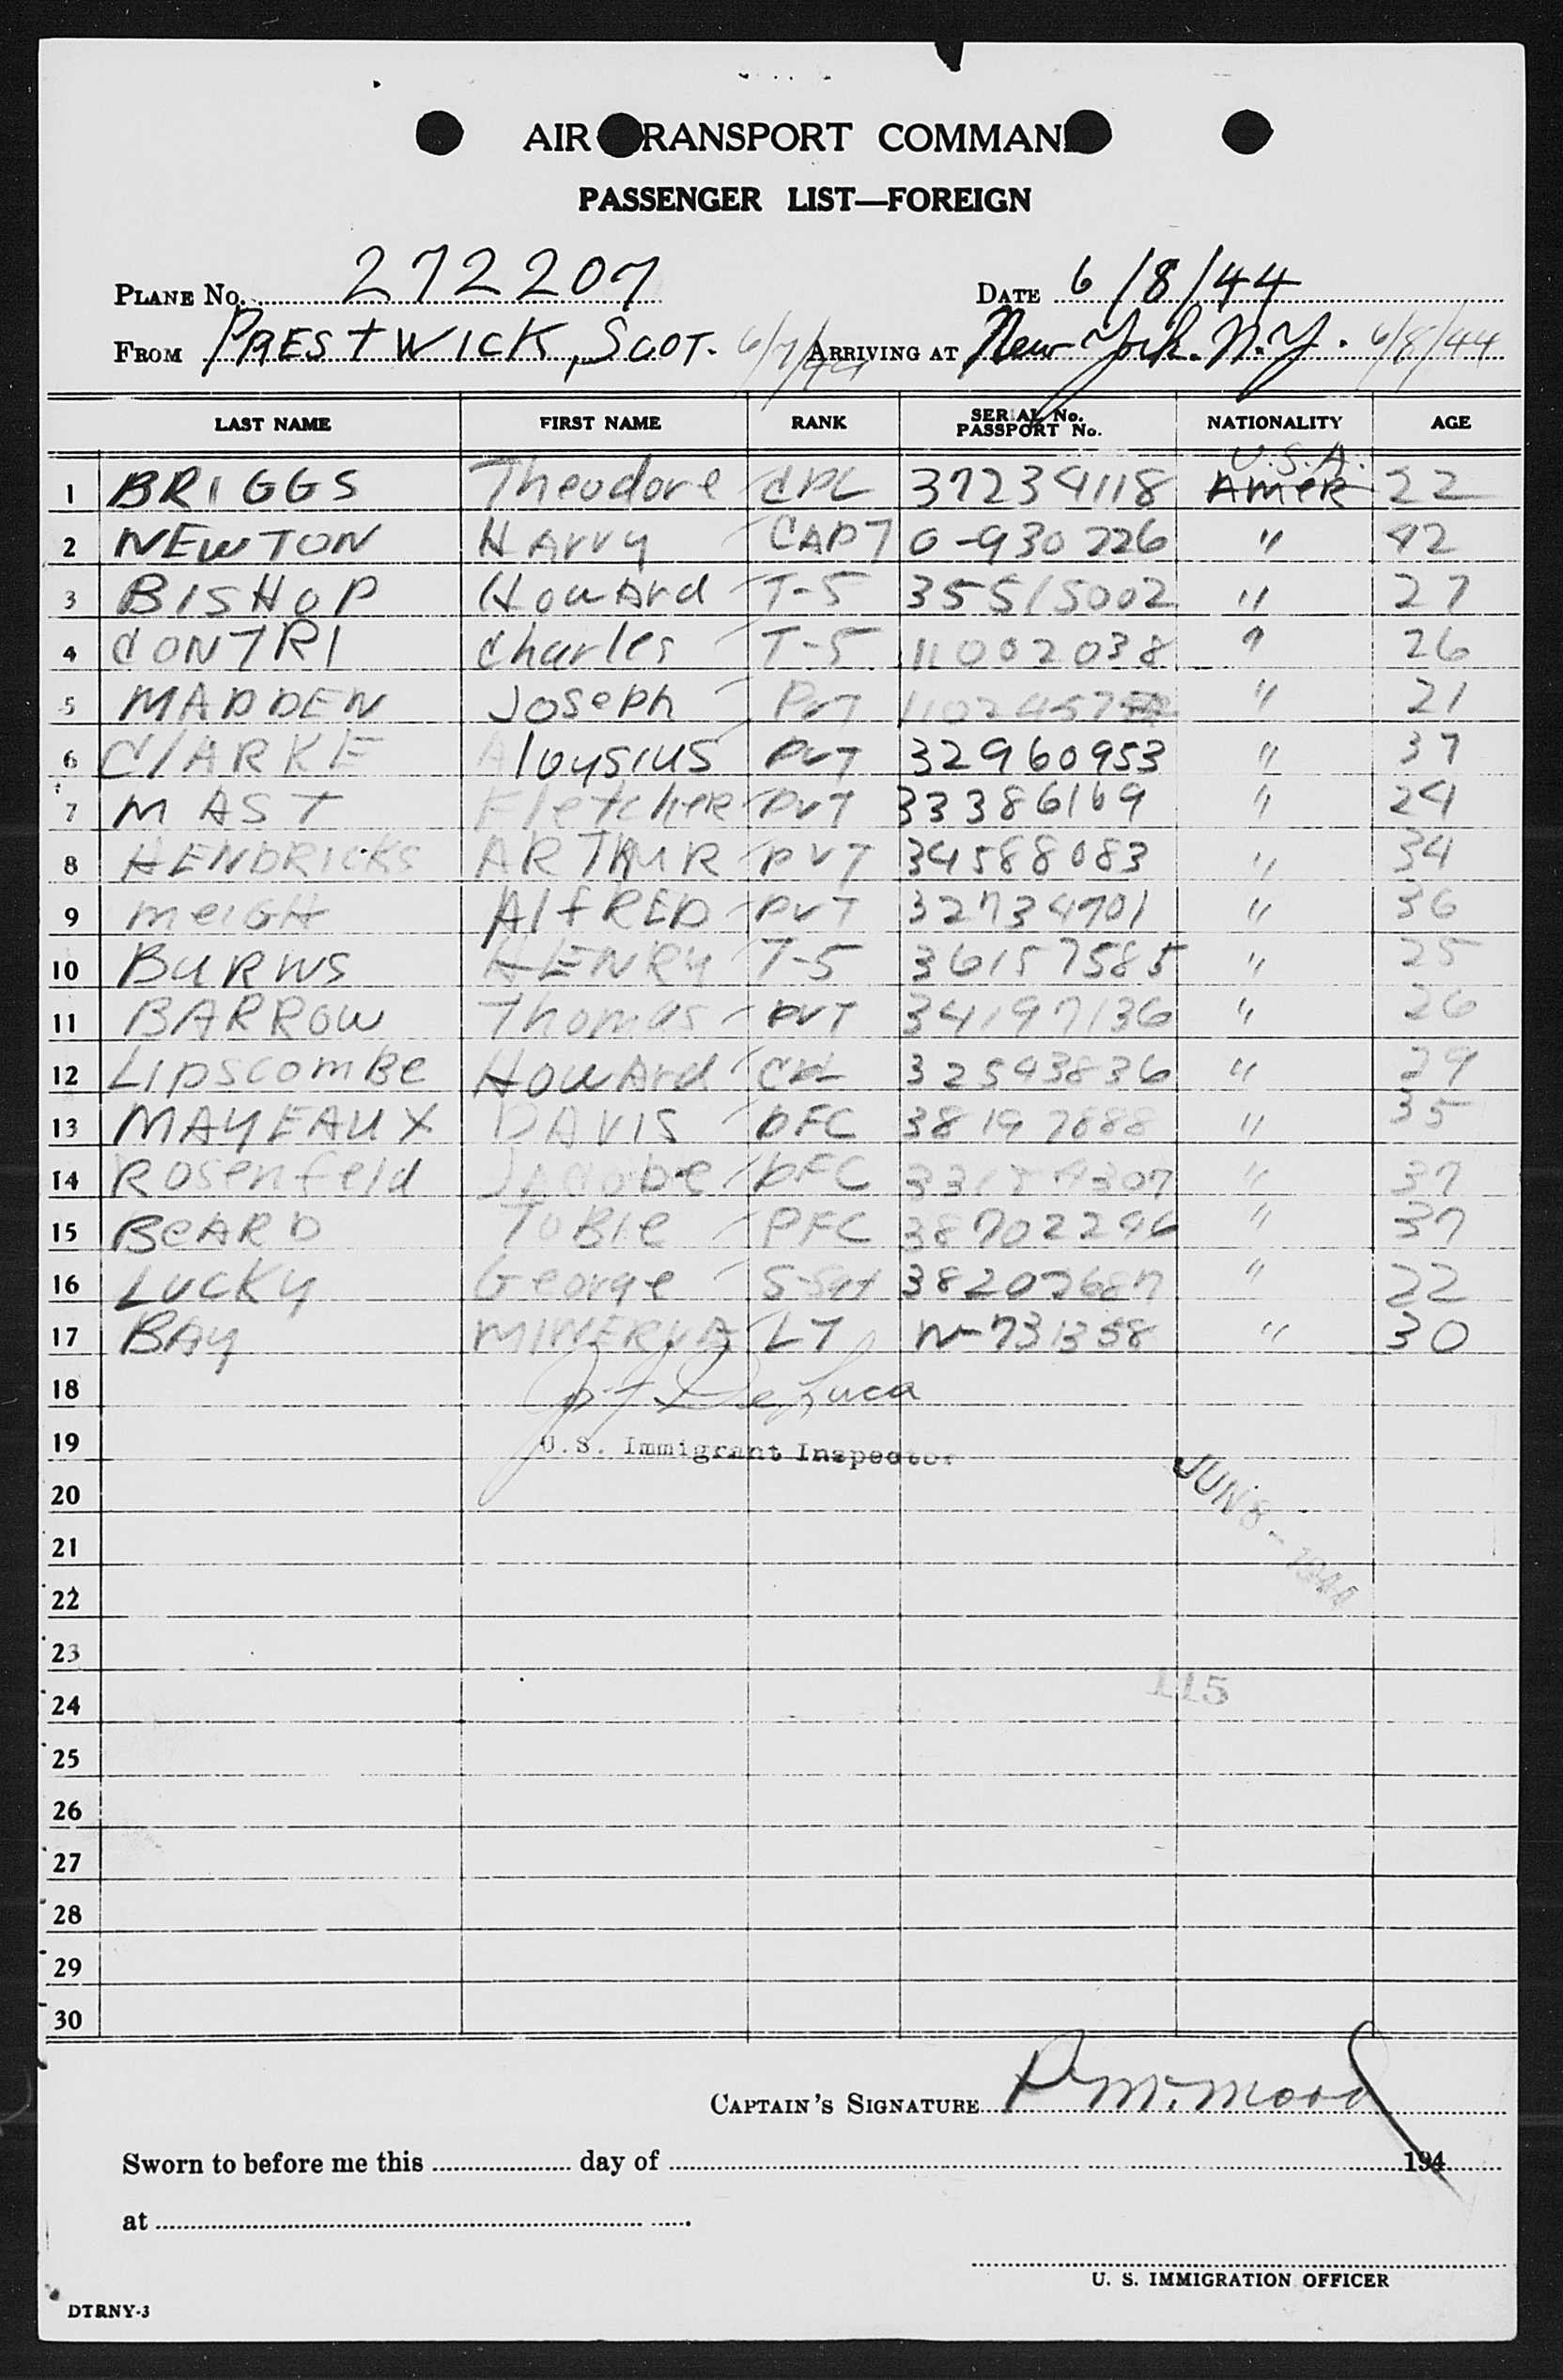 AIR TRANSPORT COMMAND
PASSENGER LIST—FOREIGN
PLANE No. 272207 DATE 6/8/44
FROM PRESTWICK, SCOT. 6/7/44 ARRIVING AT New York. N.Y. 6/8/44
LAST NAME FIRST NAME RANK SERIAL No. PASSPORT No. NATIONALITY AGE
U.S.A.
1 BRIGGS Theodore CPL 37234118 Amer 22
2 NEWTON HArry CAPT O-930226 " 42
3 BISHOP HowArd T-5 35515002 " 27
4 CONTRI Charles T-5 11002038 " 26
5 MADDEN Joseph PvT " 21
6 ClARKE Aloysius PvT 32960953 " 37
7 MAST FletcheR PvT 33386169 " 24
8 HENDRICKS ARTHUR PVT 34588083 " 34
9 meiGH AlfRED PvT 32734701 " 36
10 BURNS HENRy T-5 36157585 " 25
11 BARROW Thomas PvT 34197136 " 26
12 LipscomBe HowArd CPL 32543836 " 29
13 MAYEAUX DAVIS PFC 38197888 " 35
14 Rosenfeld JAcobe PFC " 37
15 BeARD ToBie PFC 38702296 " 37
16 LUCKy George S-Sgt 38207687 " 22
17 BAy MINERVA LT N-731358 " 30
18 De Luca
19 U.S. Immigrant Inspector
20 JUN 8 - 1944
21
22
23
24 115
25
26
27
28
29
30
CAPTAIN'S SIGNATURE
Sworn to before me this day of 194
at
U. S. IMMIGRATION OFFICER
DTRNY-3